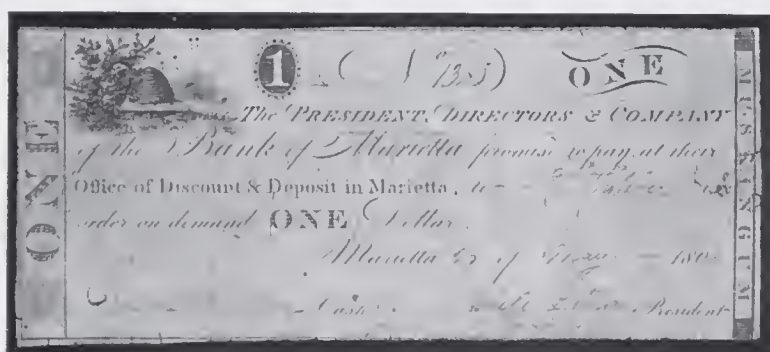 ONE
1
ONE
The PRESIDENT, DIRECTORS & COMPANY
of the Bank of Marietta promise to pay at their
Office of Discount & Deposit in Marietta, to
order on demand ONE Dollar.
Marietta of 180
Cashr. President
MUSKINGUM